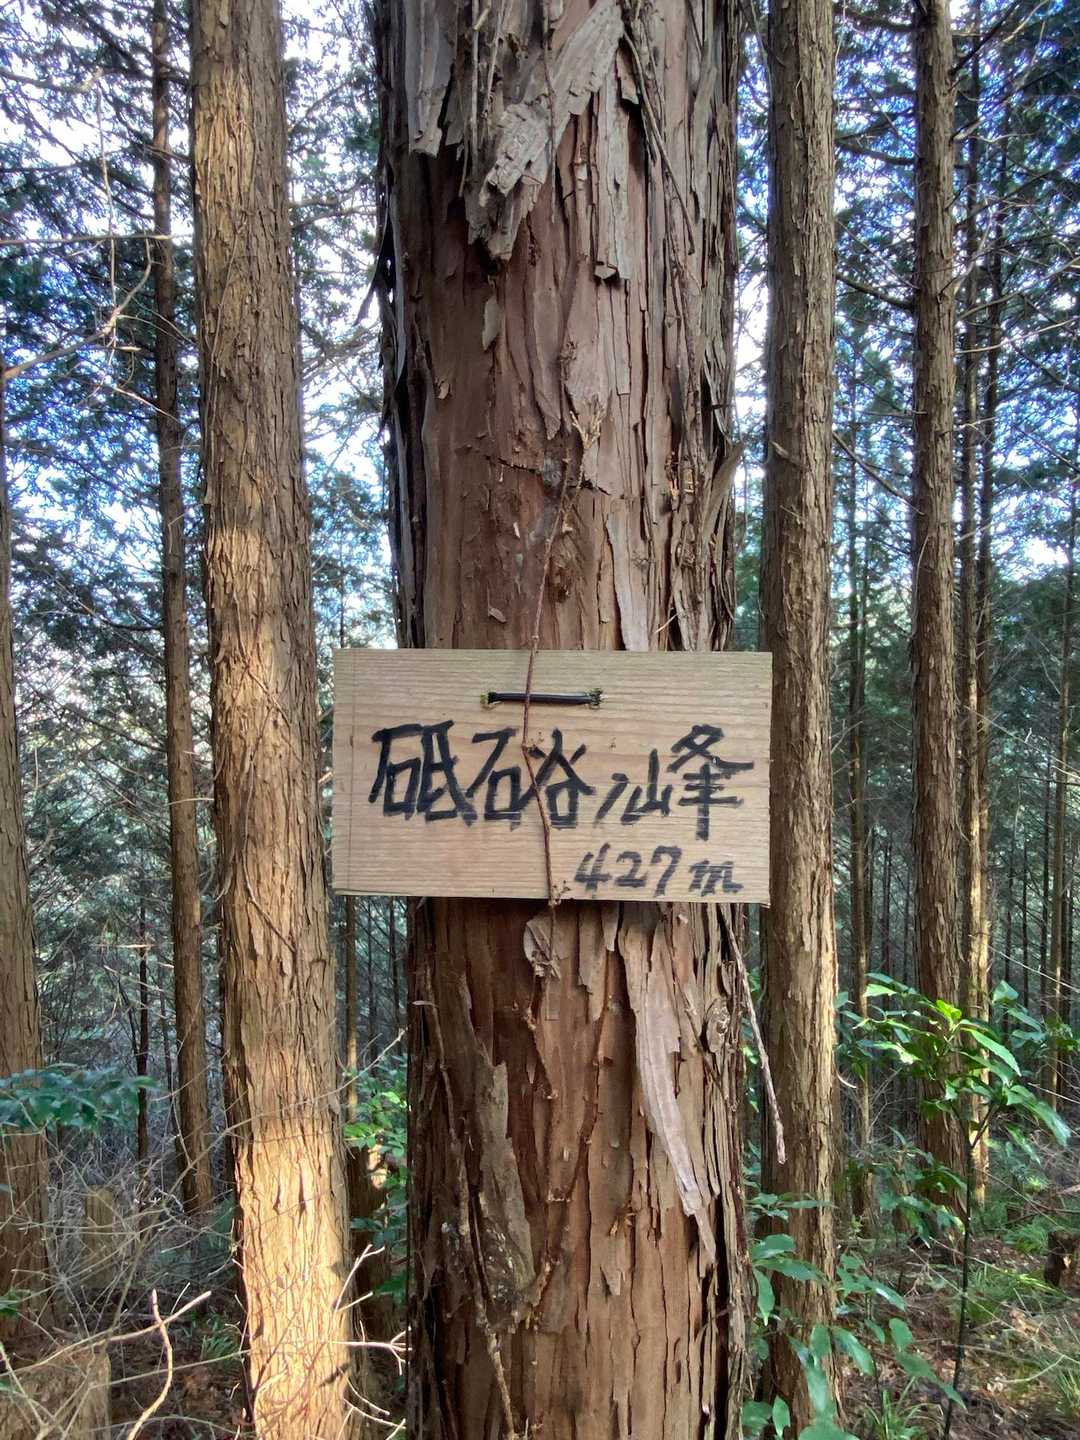 砥石谷ノ峰
427m